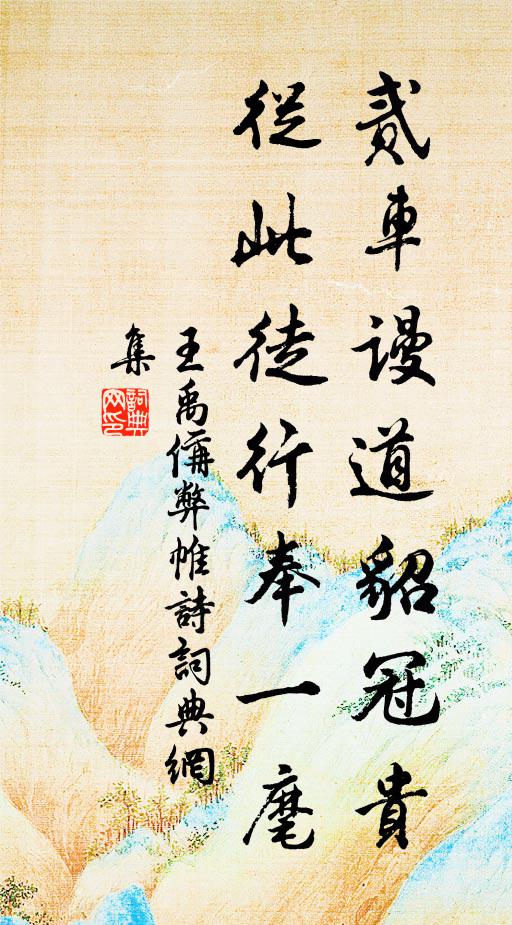 貳車謾道貂冠貴
從此徒行奉一麾
王禹偁弊帷詩詞典網
集
詞典網印